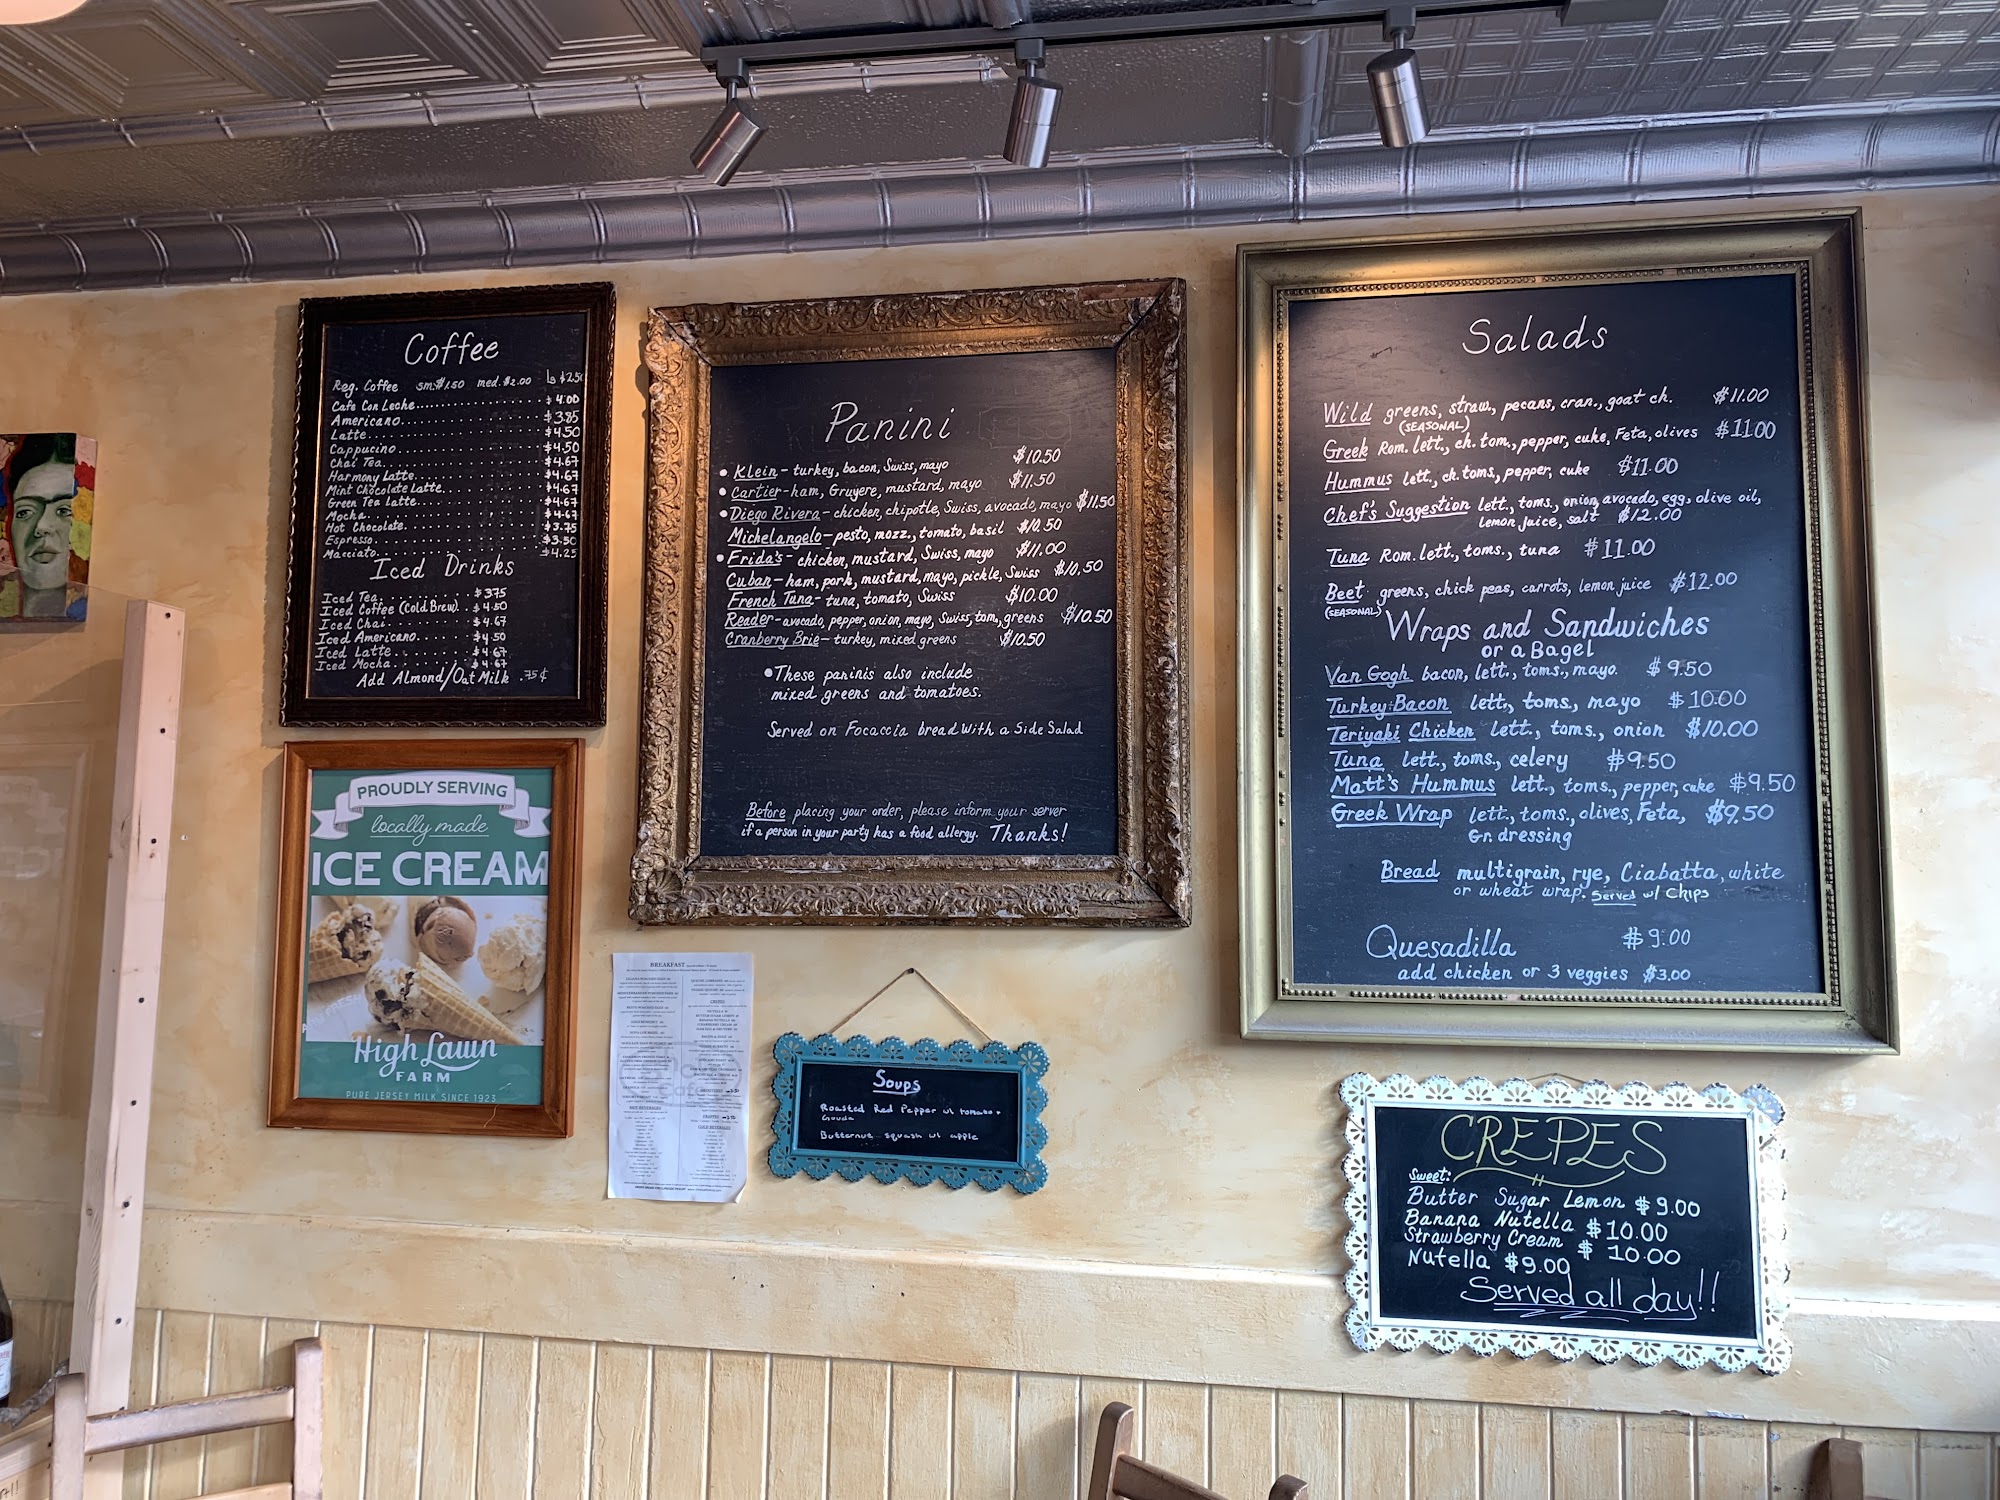 Coffee
Reg. Coffee sm. $1.50 med. $2.00 Lg $2.50
Cafe Con Leche $4.00
Americano $3.85
Latte $4.50
Cappucino $4.50
Chai Tea $4.67
Harmony Latte $4.67
Mint Chocolate Latte $4.67
Green Tea Latte $4.67
Mocha $4.67
Hot Chocolate $3.75
Espresso $3.50
Macciato $4.25
Iced Drinks
Iced Tea $3.75
Iced Coffee (Cold Brew) $4.50
Iced Chai $4.67
Iced Americano $4.50
Iced Latte $4.67
Iced Mocha $4.67
Add Almond/Oat Milk .75¢
PROUDLY SERVING
locally made
ICE CREAM
High Lawn
FARM
PURE JERSEY MILK SINCE 1923
Panini
• Klein - turkey, bacon, Swiss, mayo $10.50
• Cartier - ham, Gruyere, mustard, mayo $11.50
• Diego Rivera - chicken, chipotle, Swiss, avocado, mayo $11.50
Michelangelo - pesto, mozz., tomato, basil $10.50
• Frida's - chicken, mustard, Swiss, mayo $11.00
Cuban - ham, pork, mustard, mayo, pickle, Swiss $10.50
French Tuna - tuna, tomato, Swiss $10.00
Reader - avocado, pepper, onion, mayo, Swiss, tom., greens $10.50
Cranberry Brie - turkey, mixed greens $10.50
• These paninis also include
mixed greens and tomatoes.
Served on Focaccia bread With a Side Salad
Before placing your order, please inform your server
if a person in your party has a food allergy. Thanks!
BREAKFAST
CREPES
Soups
Roasted Red Pepper w/ tomato +
Gouda
Butternut squash w/ apple
Salads
Wild greens, straw., pecans, cran., goat ch. $11.00
(SEASONAL)
Greek Rom. lett., ch. tom., pepper, cuke, Feta, olives $11.00
Hummus lett., ch. toms, pepper, cuke $11.00
Chef's Suggestion lett., toms., onion, avocado, egg, olive oil,
lemon juice, salt $12.00
Tuna Rom. lett., toms., tuna $11.00
Beet greens, chick peas, carrots, lemon juice $12.00
(SEASONAL)
Wraps and Sandwiches
or a Bagel
Van Gogh bacon, lett., toms., mayo. $9.50
Turkey Bacon lett., toms., mayo $10.00
Teriyaki Chicken lett., toms., onion $10.00
Tuna lett., toms., celery $9.50
Matt's Hummus lett., toms., pepper, cuke $9.50
Greek Wrap lett., toms., olives, Feta, $9.50
Gr. dressing
Bread multigrain, rye, Ciabatta, white
or wheat wrap. Served w/ Chips
Quesadilla $9.00
add chicken or 3 veggies $3.00
CREPES
Sweet:
Butter Sugar Lemon $9.00
Banana Nutella $10.00
Strawberry Cream $10.00
Nutella $9.00
Served all day!!